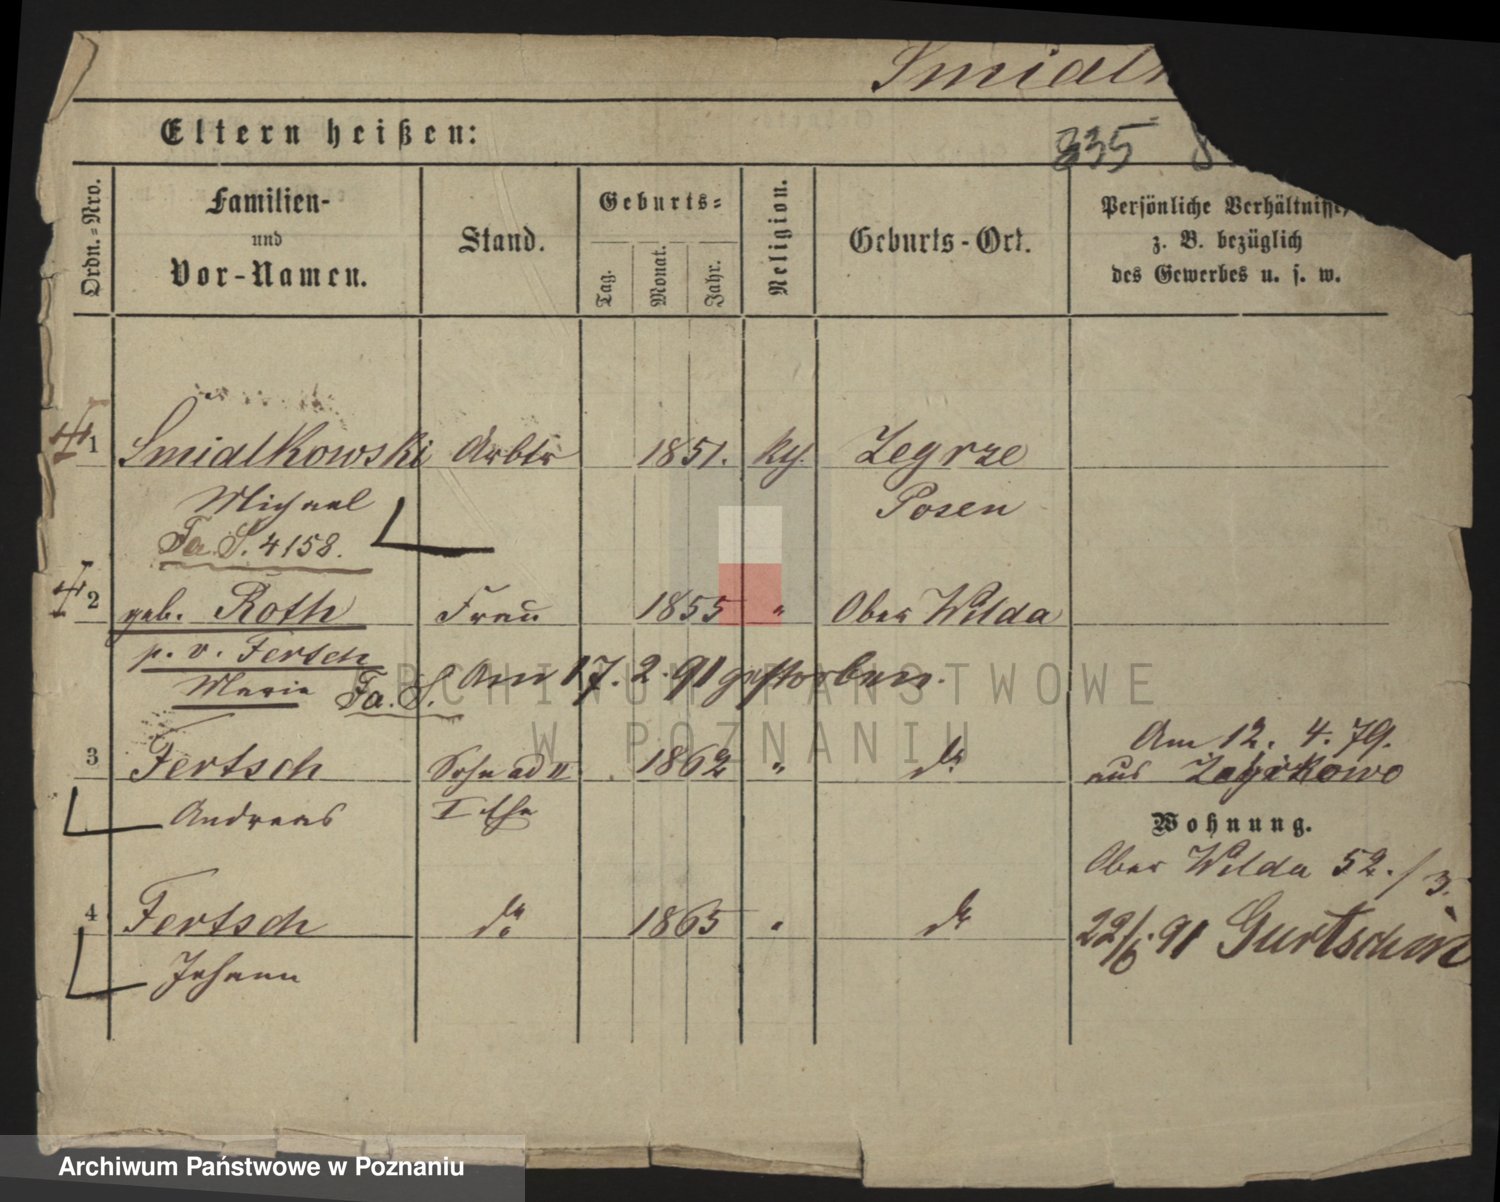 Smialk
Eltern heißen:
335 8
Ordn.=Nro.
Familien-
und
Vor-Namen.
Stand.
Geburts=
Tag.
Monat.
Jahr.
Religion.
Geburts-Ort.
Persönliche Verhältnisse,
z. B. bezüglich
des Gewerbes u. s. w.
1 Smialkowski Arbtr 1851. kg. Zegrze
Michael Posen
Fa. S. 4158.
2 geb. Roth Frau 1855 " Ober Wilda
p. v. Fertsch
Marie Fa. S. Am 17. 2. 91 gestorben.
3 Fertsch Sohn ad II 1862 " do
Andreas I Ehe
Am 12. 4. 79.
aus Zegrkowo
Wohnung.
Ober Wilda 52. / 3.
4 Fertsch do 1865 " do
Johann
22/6. 91 Gurtschin
ARCHIWUM PAŃSTWOWE
W POZNANIU
Archiwum Państwowe w Poznaniu